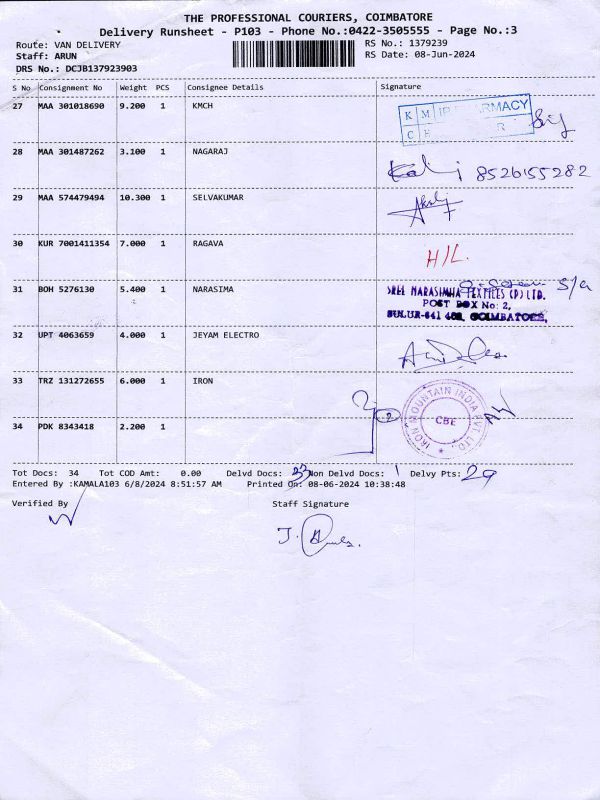 THE PROFESSIONAL COURIERS, COIMBATORE
Delivery Runsheet - P103 - Phone No.:0422-3505555 - Page No.:3
Route: VAN DELIVERY
RS No.: 1379239
Staff: ARUN
RS Date: 08-Jun-2024
DRS No.: DCJB137923903
S No Consignment No Weight PCS Consignee Details Signature
27 MAA 301018690 9.200 1 KMCH
K M PHARMACY
C H R
28 MAA 301487262 3.100 1 NAGARAJ 8526155282
29 MAA 574479494 10.300 1 SELVAKUMAR
30 KUR 7001411354 7.000 1 RAGAVA H/L
31 BOH 5276130 5.400 1 NARASIMA
SREE NARASIMHA TEXTILES (P) LTD.
POST BOX No: 2,
SULUR-641 402, COIMBATORE,
32 UPT 4063659 4.000 1 JEYAM ELECTRO
33 TRZ 131272655 6.000 1 IRON
IRON MOUNTAIN INDIA PVT. LTD
CBE
34 PDK 8343418 2.200 1
Tot Docs: 34 Tot COD Amt: 0.00 Delvd Docs: 33 Non Delvd Docs: 1 Delvy Pts: 29
Entered By :KAMALA103 6/8/2024 8:51:57 AM Printed On: 08-06-2024 10:38:48
Verified By Staff Signature